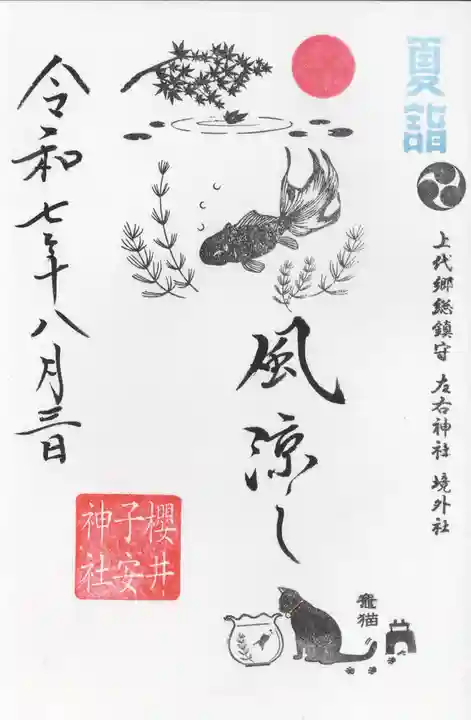 夏詣
上代郷総鎮守 左右神社 境外社
風涼し
令和七年八月三日
櫻井
子安
神社
竈猫